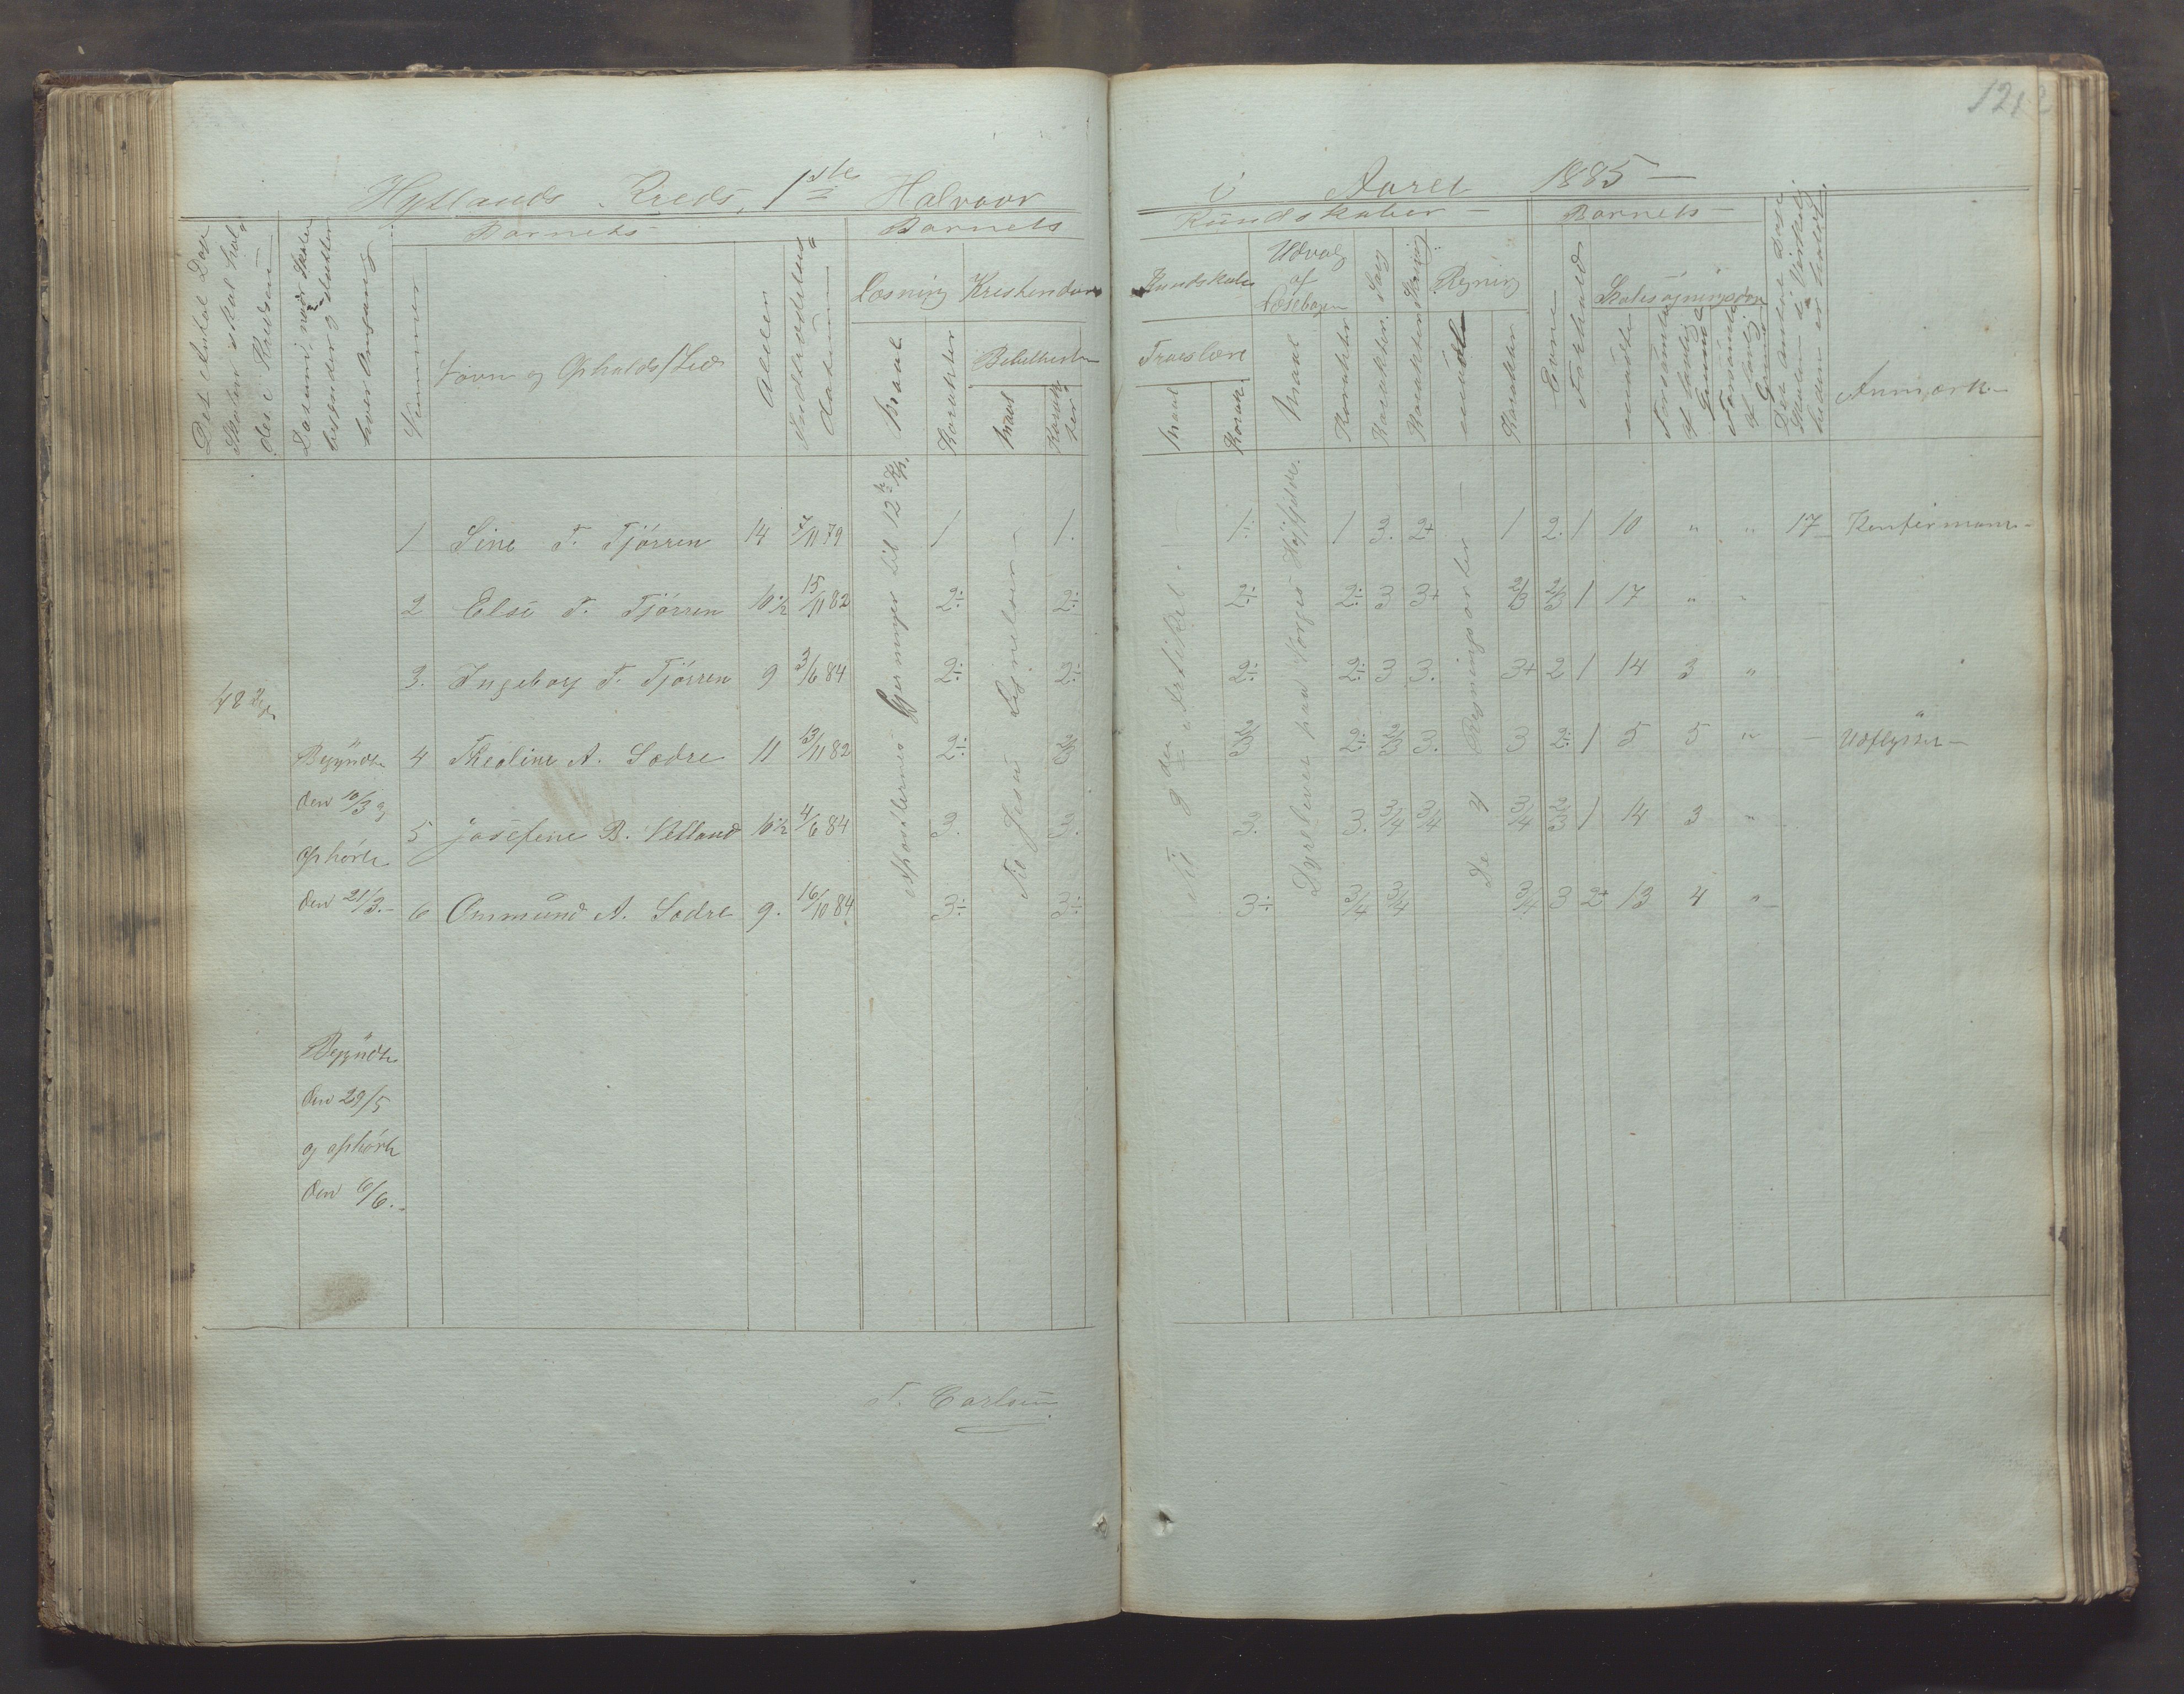 121
Hytlands Kreds, 1ste Halvaar i Aaret 1885 —
Det Antal Dage Skolen skal holdes i Kredsen —
Datum, naar Skolen begynder og slutter hver Omgang
Nummer
Barnets
Navn og Opholds/Sted
Alder
Indtrædelses Datum
Barnets
Læsning
Maal
Karakter
Kristendoms
Bibelhistorie
Maal
Karakter
Kundskaber —
Kundskab
Troeslære
Maal
Karakt
Udvalg af Læsebogen
Maal
Karakter
Sang
Karakter
Skrivning
Karakter
Regning
Karakter
Barnets —
Evne
Forhold
Skolesøgningsdage
mødte
Forsømte af lovlig Grund
Forsømte af ulovlig Grund
Det Antal Dage Skolen i Virkeligheden er holdt.
Anmærk—
48
Begyndte den 10/3 og Ophørte den 21/3.—
Begyndte den 29/5 og ophørte den 6/6.
Apostlernes Gjerninger til 12te Kp.
Til Jesu Lignelser —
Til 3die Artikel.
Dyrelivet paa Norges Høifjelde.
De 4 Regningsarter —
1 Sine T. Tjørren 14 7/11 79 1 1. 1. 1 3. 2+ 1 2. 1 10 " " 17 Konfirmant—
2 Else T. Tjørren 10½ 15/11 82 2÷ 2÷ 2÷ 2÷ 3 3+ 2/3 2/3 1 17 " "
3. Ingeborg T. Tjørren 9 3/6 84 2÷ 2÷ 2÷ 2÷ 3 3. 3+ 2 1 14 3 "
4 Theoline A. Sædre 11 13/11 82 2÷ 2/3 2/3 2÷ 2/3 3. 3 2÷ 1 5 5 " — Udflyttet —
5 Josefine B. Netland 10½ 4/6 84 3. 3. 3. 3. 3/4 3/4 3/4 2/3 1 14 3 "
6 Ommund A. Sædre 9. 16/10 84 3÷ 3÷ 3÷ 3/4 3/4 3/4 3 2+ 13 4 "
T. Carlsen